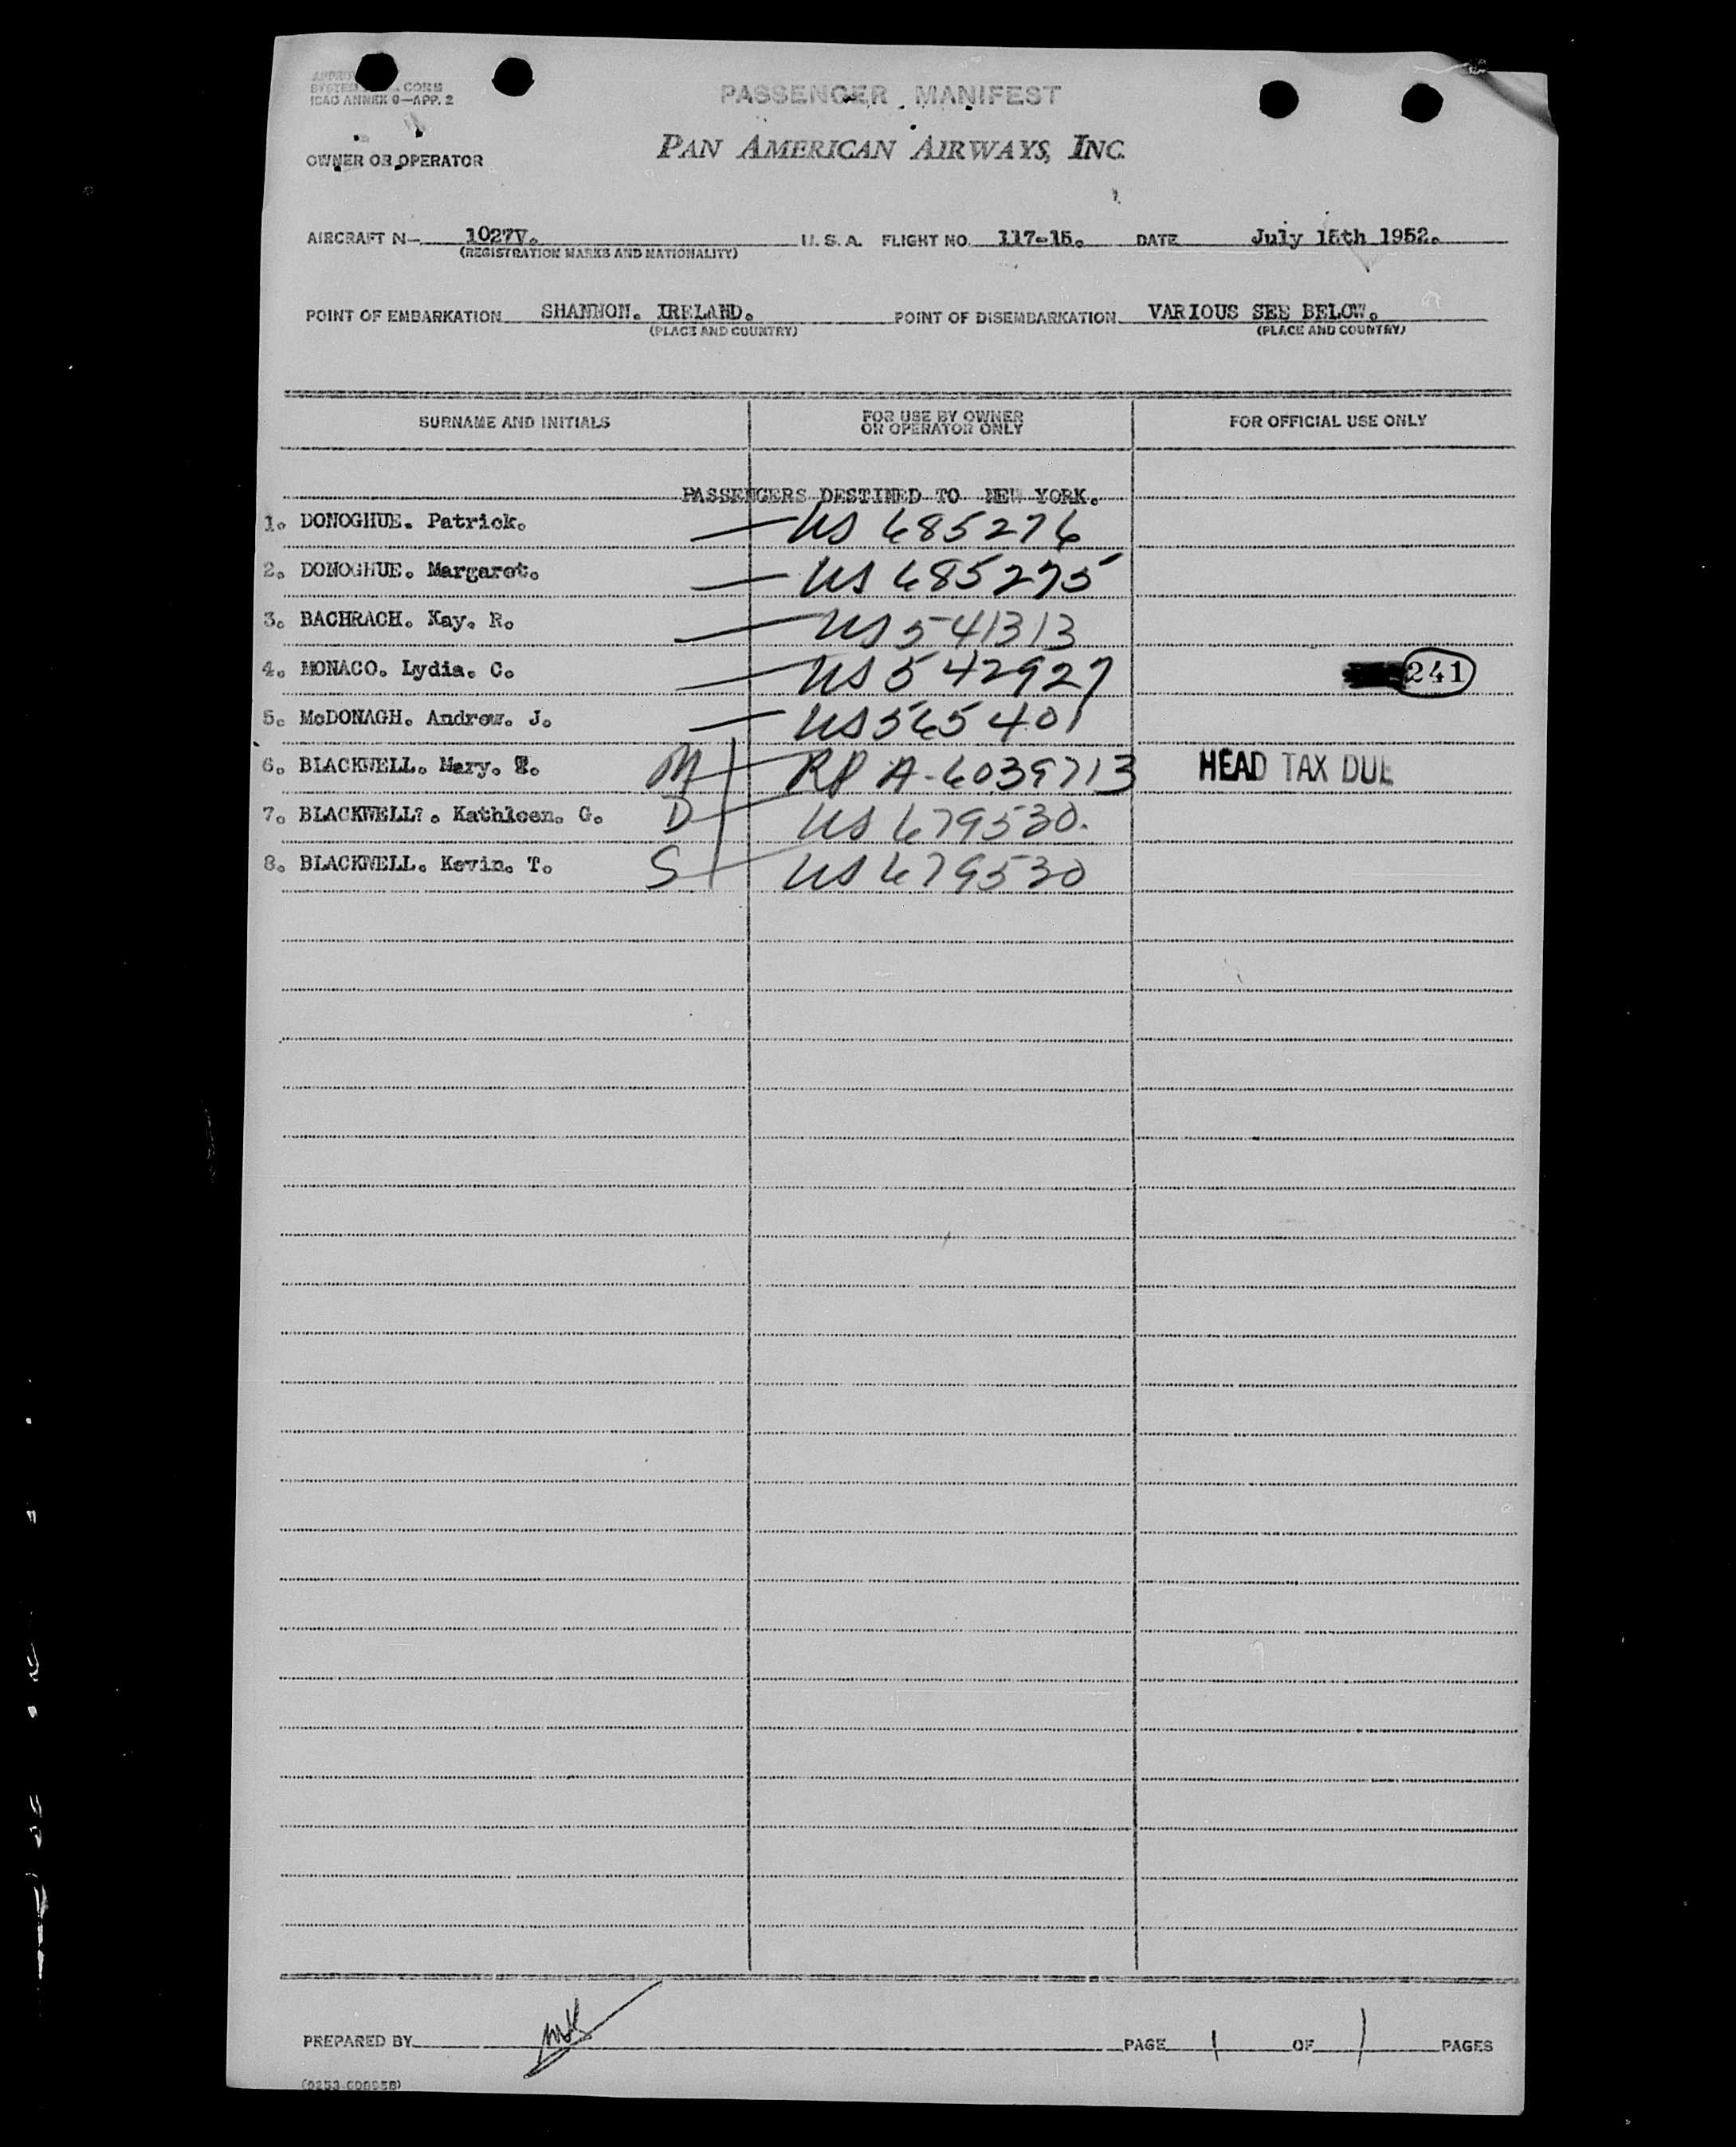 SYSTEM COMM
ICAO ANNEX 9—APP. 2
PASSENGER MANIFEST
OWNER OR OPERATOR
PAN AMERICAN AIRWAYS, INC.
AIRCRAFT N— 1027V. U. S. A. FLIGHT NO. 117-15. DATE July 15th 1952.
(REGISTRATION MARKS AND NATIONALITY)
POINT OF EMBARKATION SHANNON. IRELAND. POINT OF DISEMBARKATION VARIOUS SEE BELOW.
(PLACE AND COUNTRY) (PLACE AND COUNTRY)
SURNAME AND INITIALS FOR USE BY OWNER OR OPERATOR ONLY FOR OFFICIAL USE ONLY
PASSENGERS DESTINED TO NEW YORK.
1. DONOGHUE. Patrick. — US 685276
2. DONOGHUE. Margaret. — US 685275
3. BACHRACH. Kay. R. — US 541313
4. MONACO. Lydia. C. — US 542927 241
5. McDONAGH. Andrew. J. — US 565401
6. BLACKWELL. Mary. M RP A-6039713 HEAD TAX DUE
7. BLACKWELL. Kathleen. G. D US 679530.
8. BLACKWELL. Kevin. T. S US 679530
PREPARED BY PAGE 1 OF 1 PAGES